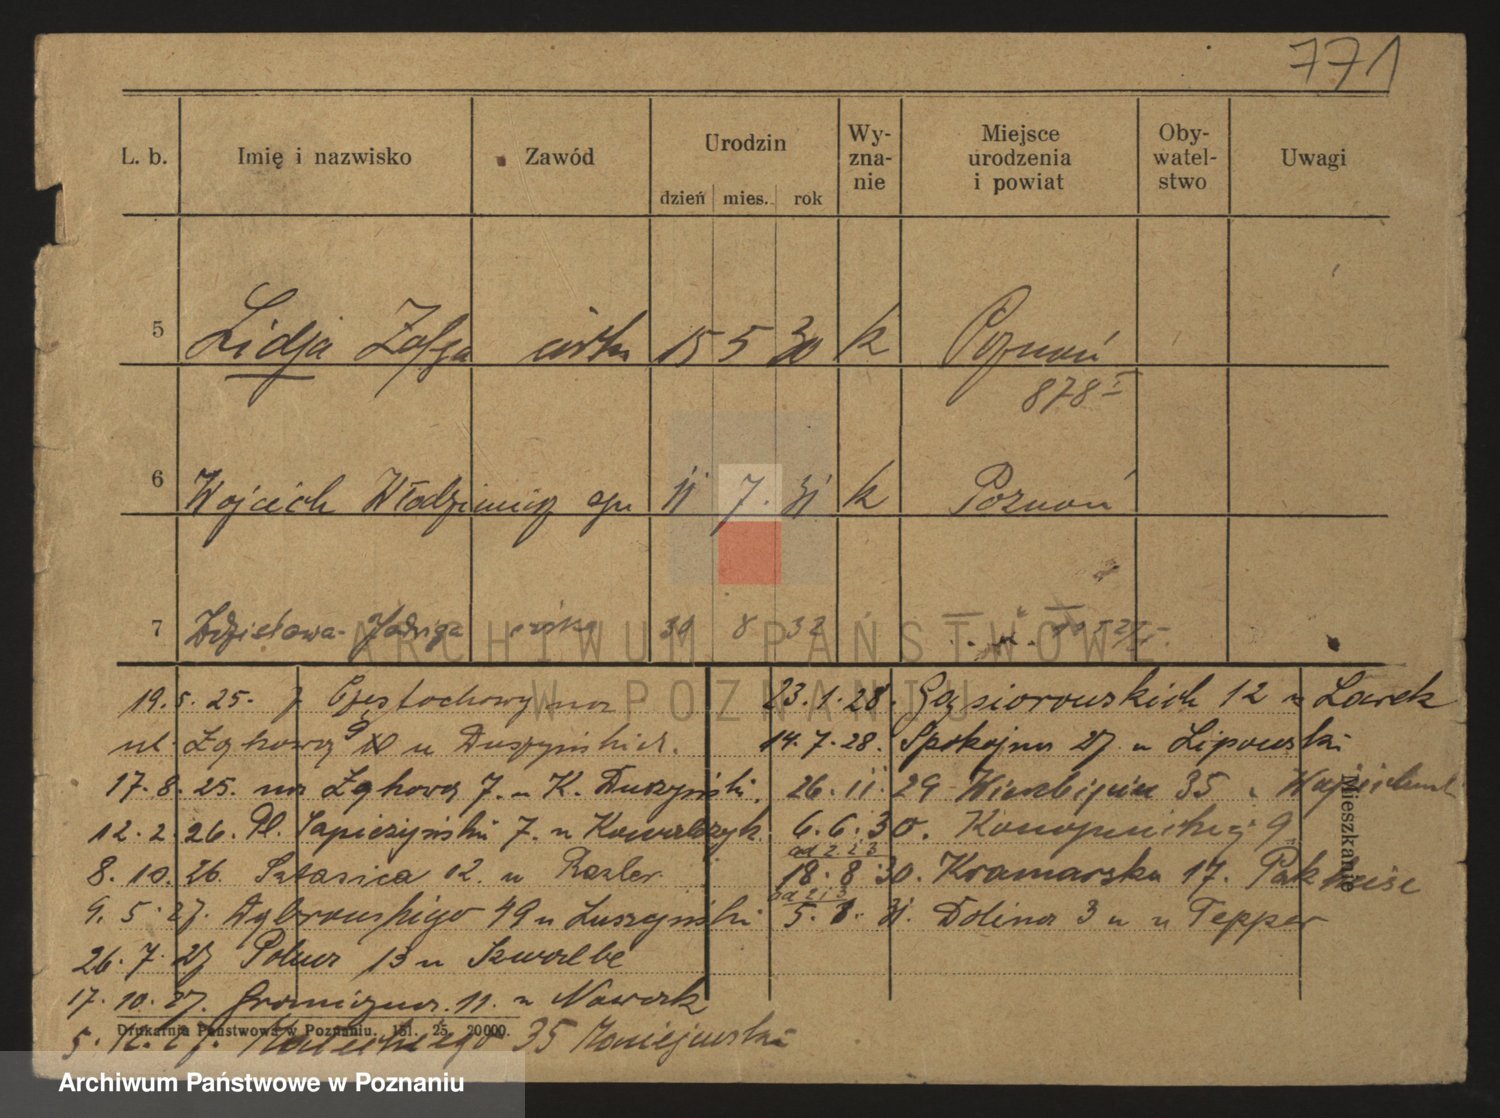 771
L. b. Imię i nazwisko Zawód Urodzin Wy-zna-nie Miejsce urodzenia i powiat Oby-watel-stwo Uwagi
dzień mies. rok
5 Lidja Zofja córka 15 5 30 k Poznań
878 I
6 Wojciech Włodzimierz syn 11 7. 31 k Poznań
7 Zdzisława Jadwiga córka 30 8 32
ARCHIWUM PAŃSTWOWE
W POZNANIU
19. 5. 25. z Częstochowy na
ul. Łąkową 9 u Duszyńskich.
17. 8. 25. na Łąkową 7. u K. Duszyński.
12. 2. 26. Pl. Sapieżyński 7. u Kowalczyk.
8. 10. 26. Staszica 12. u
9. 5. 27. Dąbrowskiego 49 u Łuszczyński
26. 7. 27 Polna 13 u Szwalbe
17. 10. 27. Graniczna 11. u Nowak
5. 12. 27. 35
23. 1. 28. Gąsiorowskich 12 u Larek
14. 7. 28. Spokojna 27 u Lipowski
26. 11. 29 Wierzbięcice 35
6. 6. 30. Konopnickiej 9
od 2 i 3
18. 8 30. Kramarska 17.
od 2 i 3
5. 8. 31. Dolina 3 u Tepper
Mieszkanie
Drukarnia Państwowa w Poznaniu. 151. 25. 20000.
Archiwum Państwowe w Poznaniu